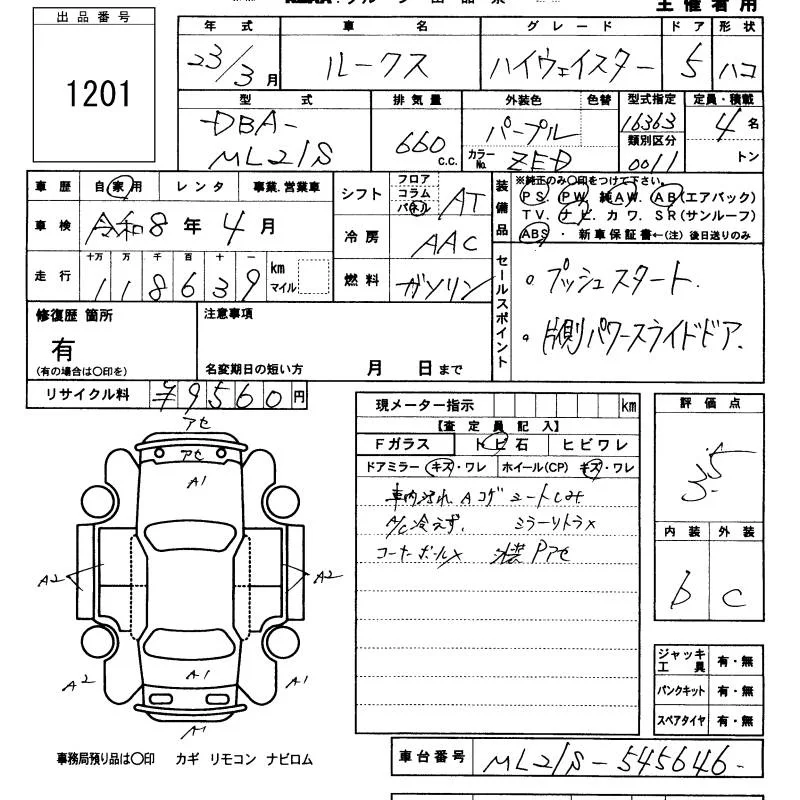 主催者用
出品番号
1201
年式 車名 グレード ドア 形状
23/3月 ルークス ハイウェイスター 5 ハコ
型式 排気量 外装色 色替 型式指定 定員・積載
DBA-
ML21S
660 c.c.
パープル
カラーNo. ZED
16363
類別区分
0011
4名
トン
車歴 自家用 レンタ 事業.営業車
車検 令和8年4月
走行 十万 万 千 百 十 一
118639 km
マイル
シフト フロア
コラム
パネル
AT
冷房 AAC
燃料 ガソリン
装備品
※純正のみ○印をつけて下さい。
PS. PW. 純AW. AB(エアバック)
TV. ナビ. カワ. SR(サンルーフ)
ABS・新車保証書←(注)後日送りのみ
セールスポイント
。プッシュスタート.
。片側パワースライドドア.
修復歴 箇所
有
(有の場合は○印を)
注意事項
名変期日の短い方 月 日まで
リサイクル料 ¥9560円
現メーター指示 km
【査定員記入】
Fガラス トビ石 ヒビワレ
ドアミラー キズ・ワレ ホイール(CP) キズ・ワレ
車内汚れ Aコゲ シートしみ
A/C冷えず. ミラーリトラ×
コーナーポール×
Pアセ
評価点
3.5
内装 外装
b c
アセ
アセ
A1
A2
A2
A2
A1
A1
A1
ジャッキ工具 有・無
パンクキット 有・無
スペアタイヤ 有・無
事務局預り品は○印 カギ リモコン ナビロム
車台番号 ML21S-545646-